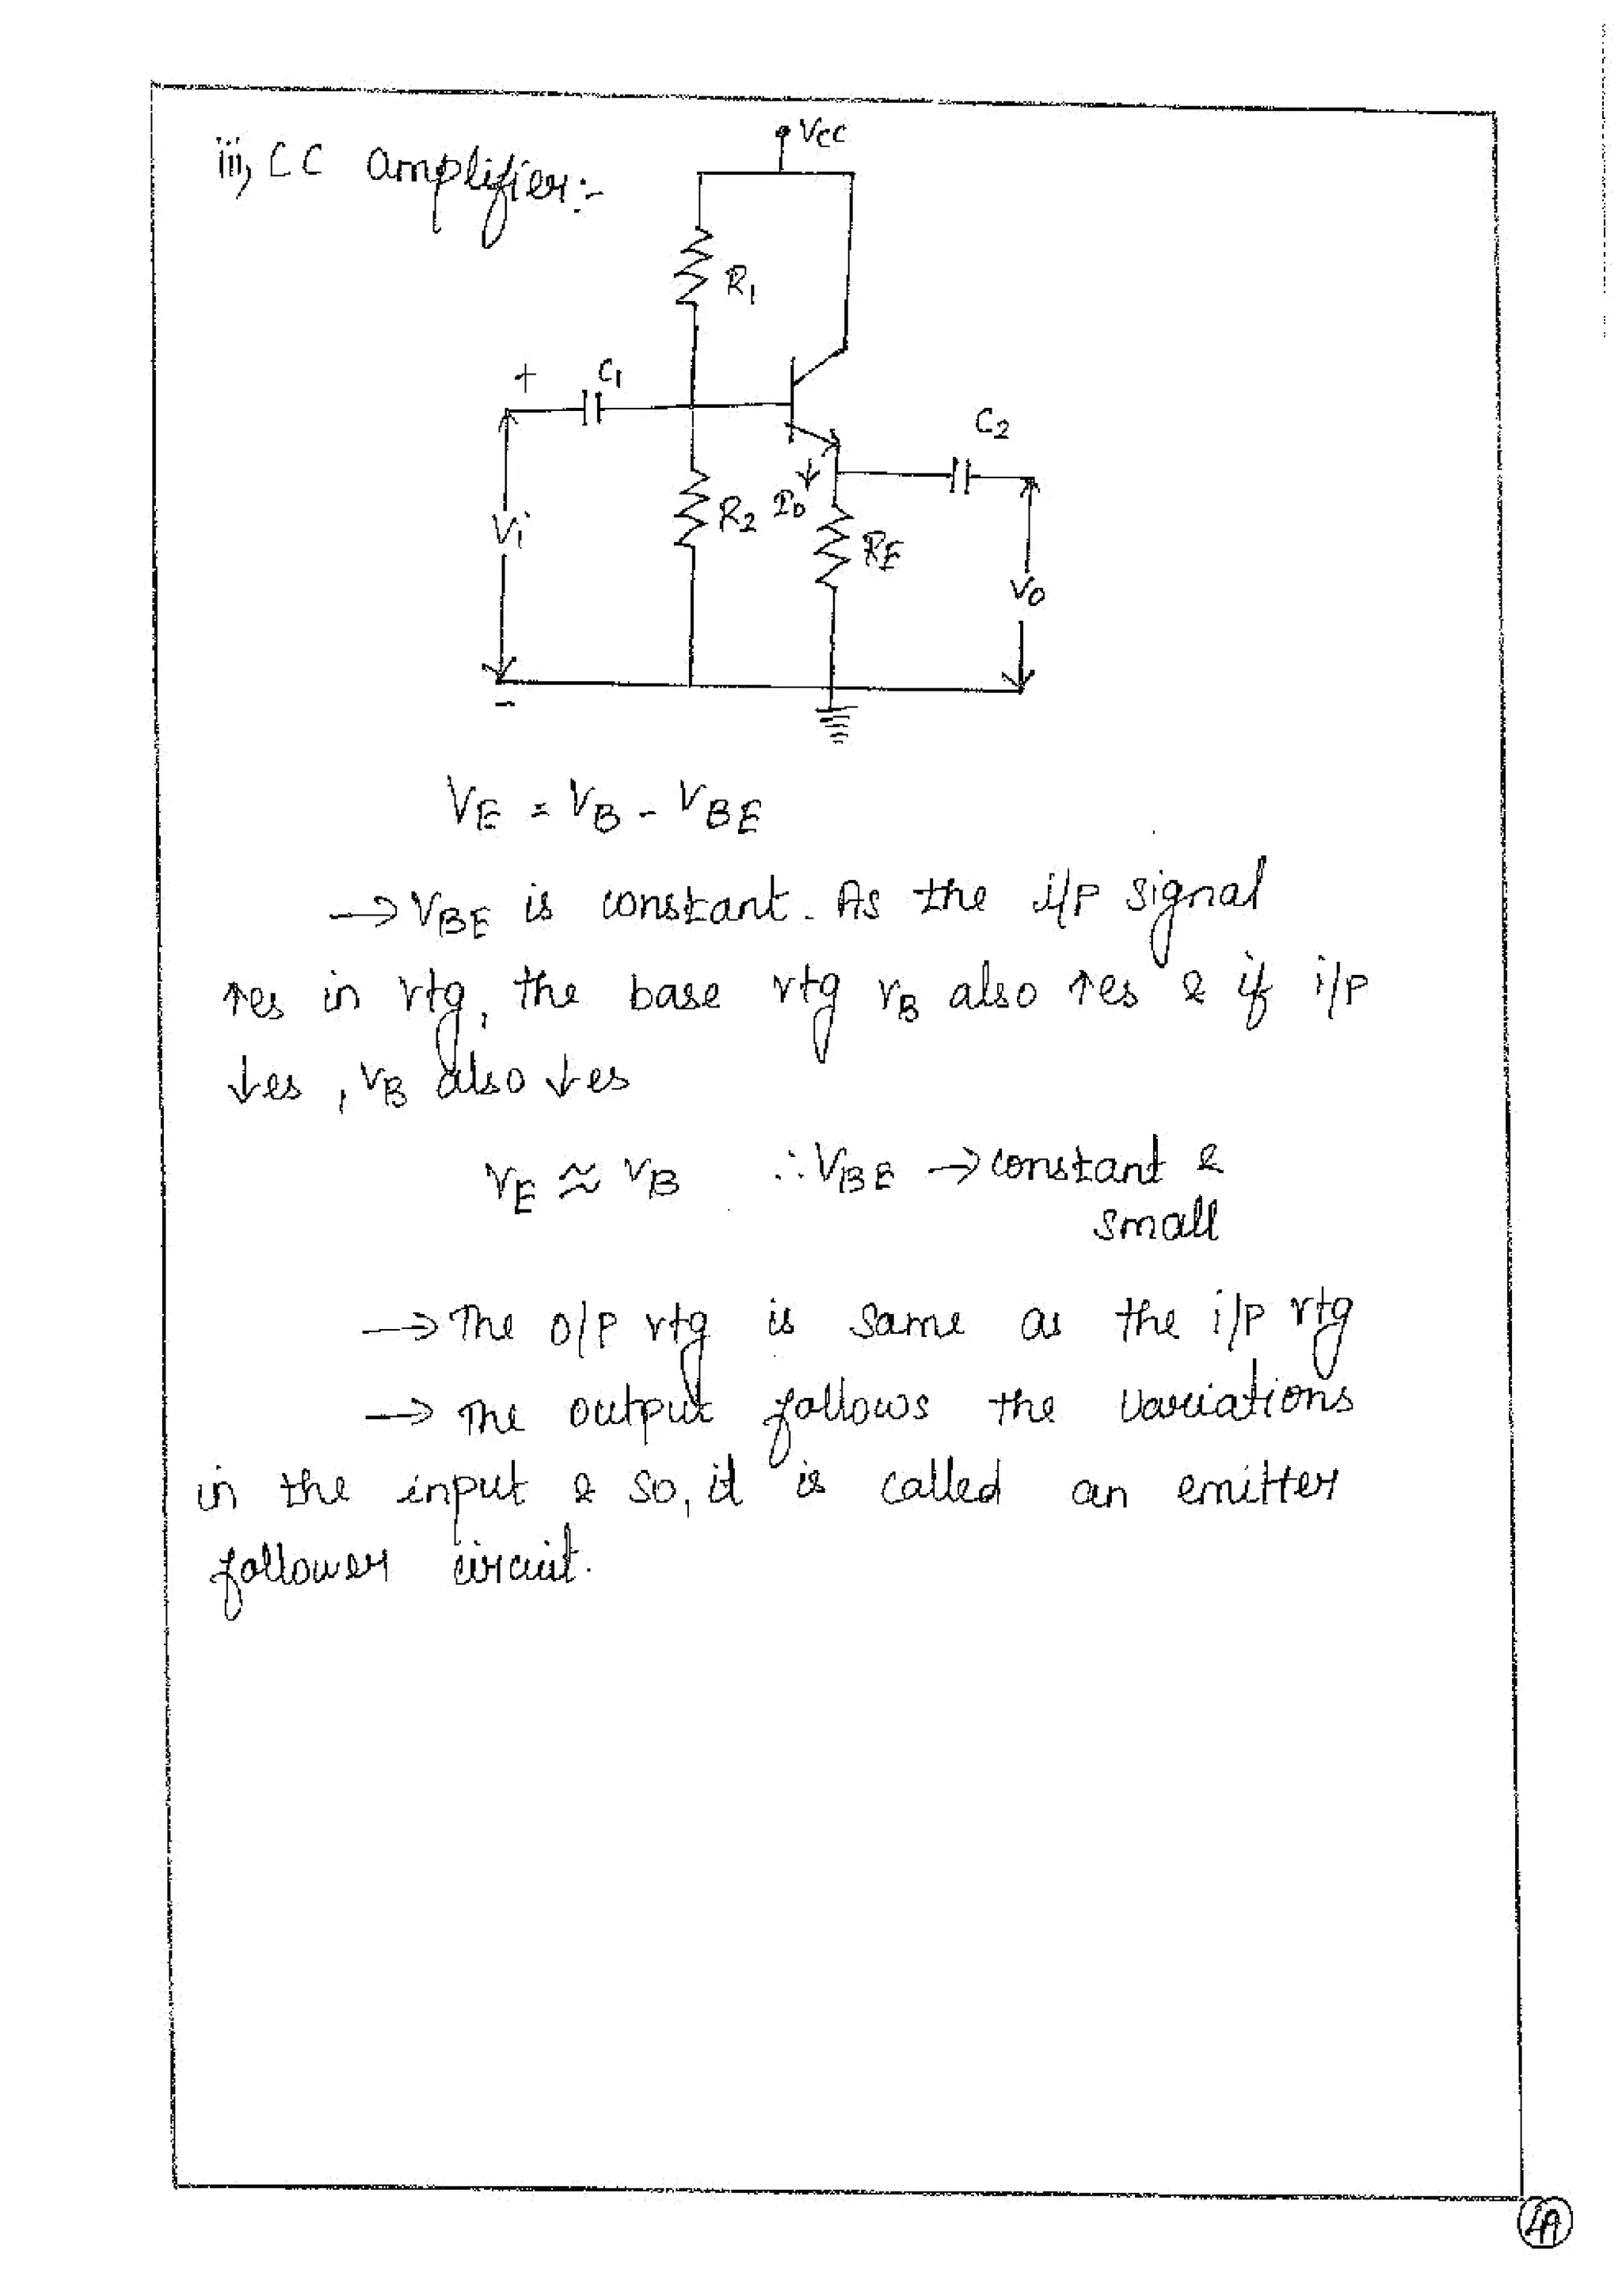 iii, CC amplifier:-
VCC
R1
+
C1
C2
Vi
R2
Io
RE
Vo
-
VE = VB - VBE
→ VBE is constant. As the i/p signal
↑es in vtg, the base vtg VB also ↑es & if i/p
↓es, VB also ↓es
VE ≈ VB ∴ VBE → constant &
small
→ The o/p vtg is same as the i/p vtg
→ The output follows the variations
in the input & so, it is called an emitter
follower circuit.